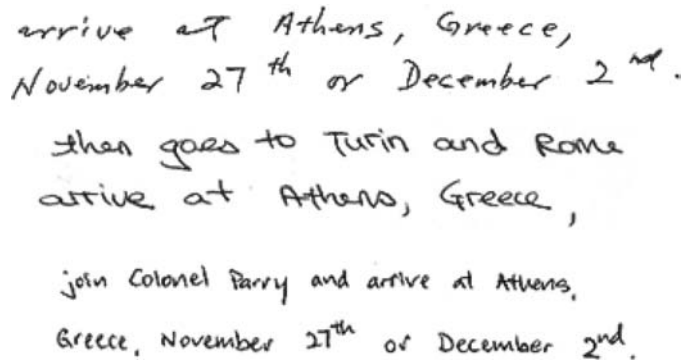 arrive at Athens, Greece,
November 27th or December 2nd.
then goes to Turin and Rome
arrive at Athens, Greece,
join Colonel Parry and arrive at Athens,
Greece, November 27th or December 2nd.